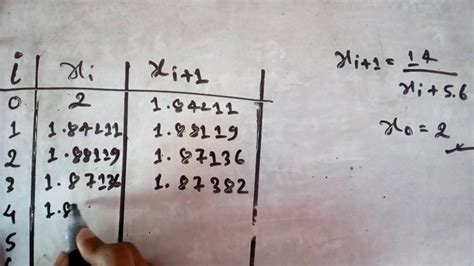 i x_i x_{i+1}
0 2 1.84211
1 1.84211 1.88119
2 1.88119 1.87136
3 1.87136 1.87382
4 1.8
5
x_{i+1} = 14 / (x_i + 5.6)
x_0 = 2